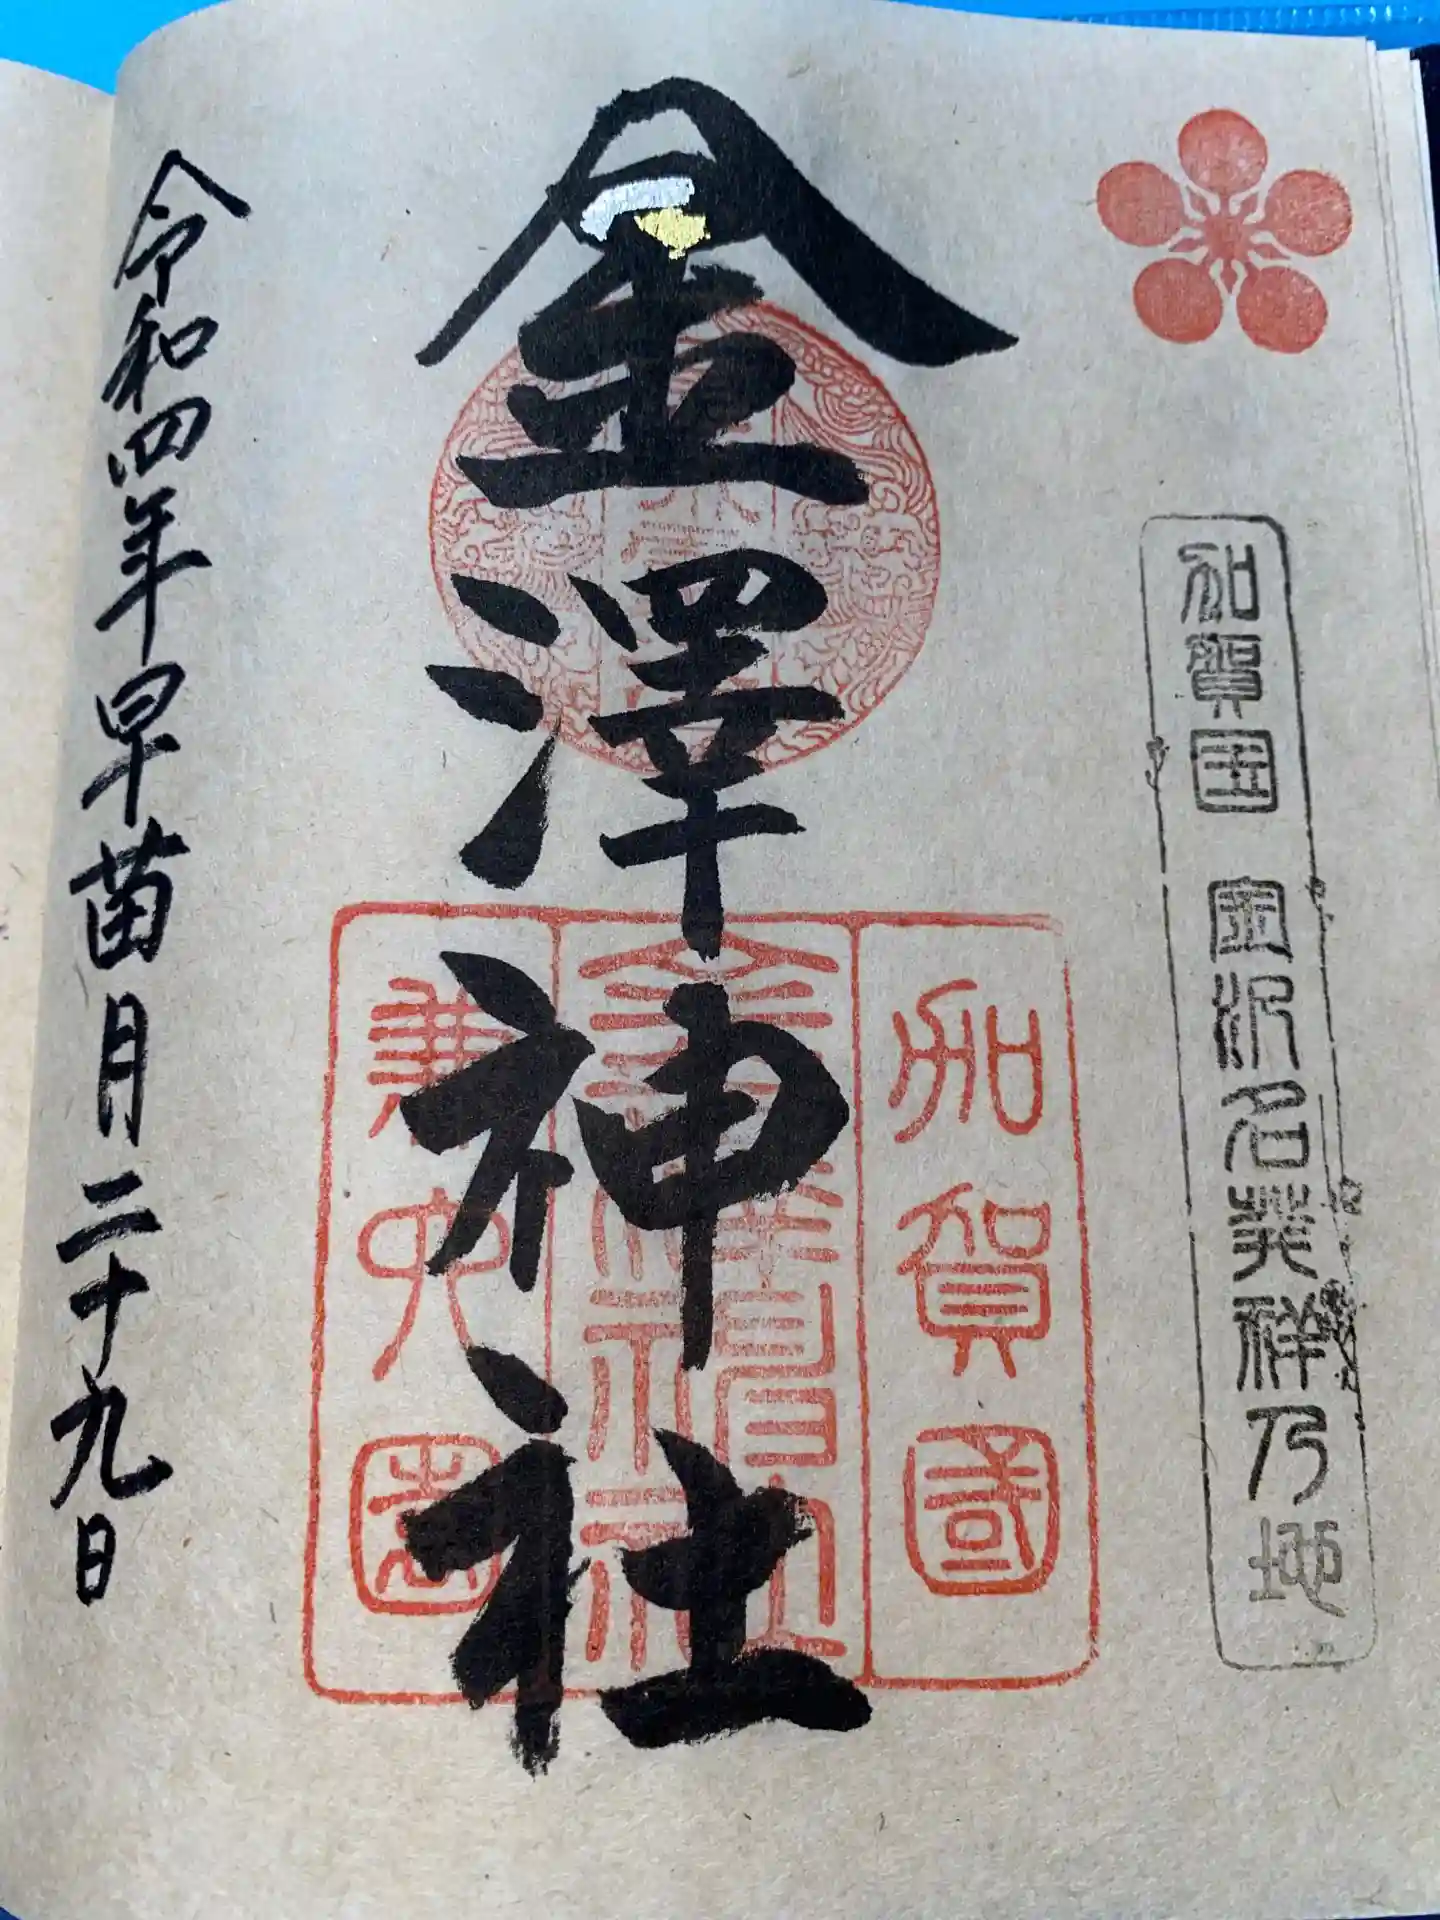 加賀国 金沢名発祥乃地
金澤神社
加賀國
兼六園
令和四年早苗月二十九日